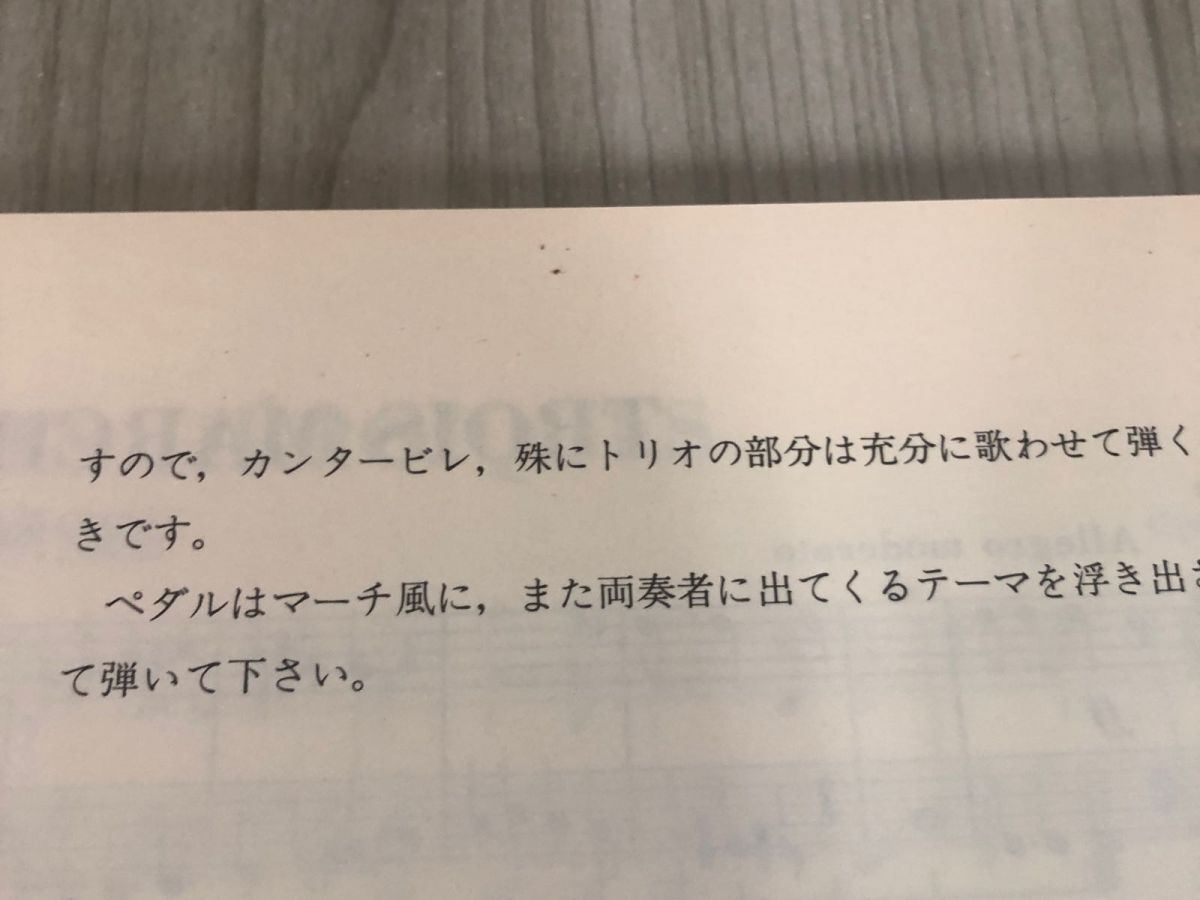 すので，カンタービレ，殊にトリオの部分は充分に歌わせて弾く
きです。
ペダルはマーチ風に，また両奏者に出てくるテーマを浮き出さ
て弾いて下さい。
TROIS MARC
Allegro moderato